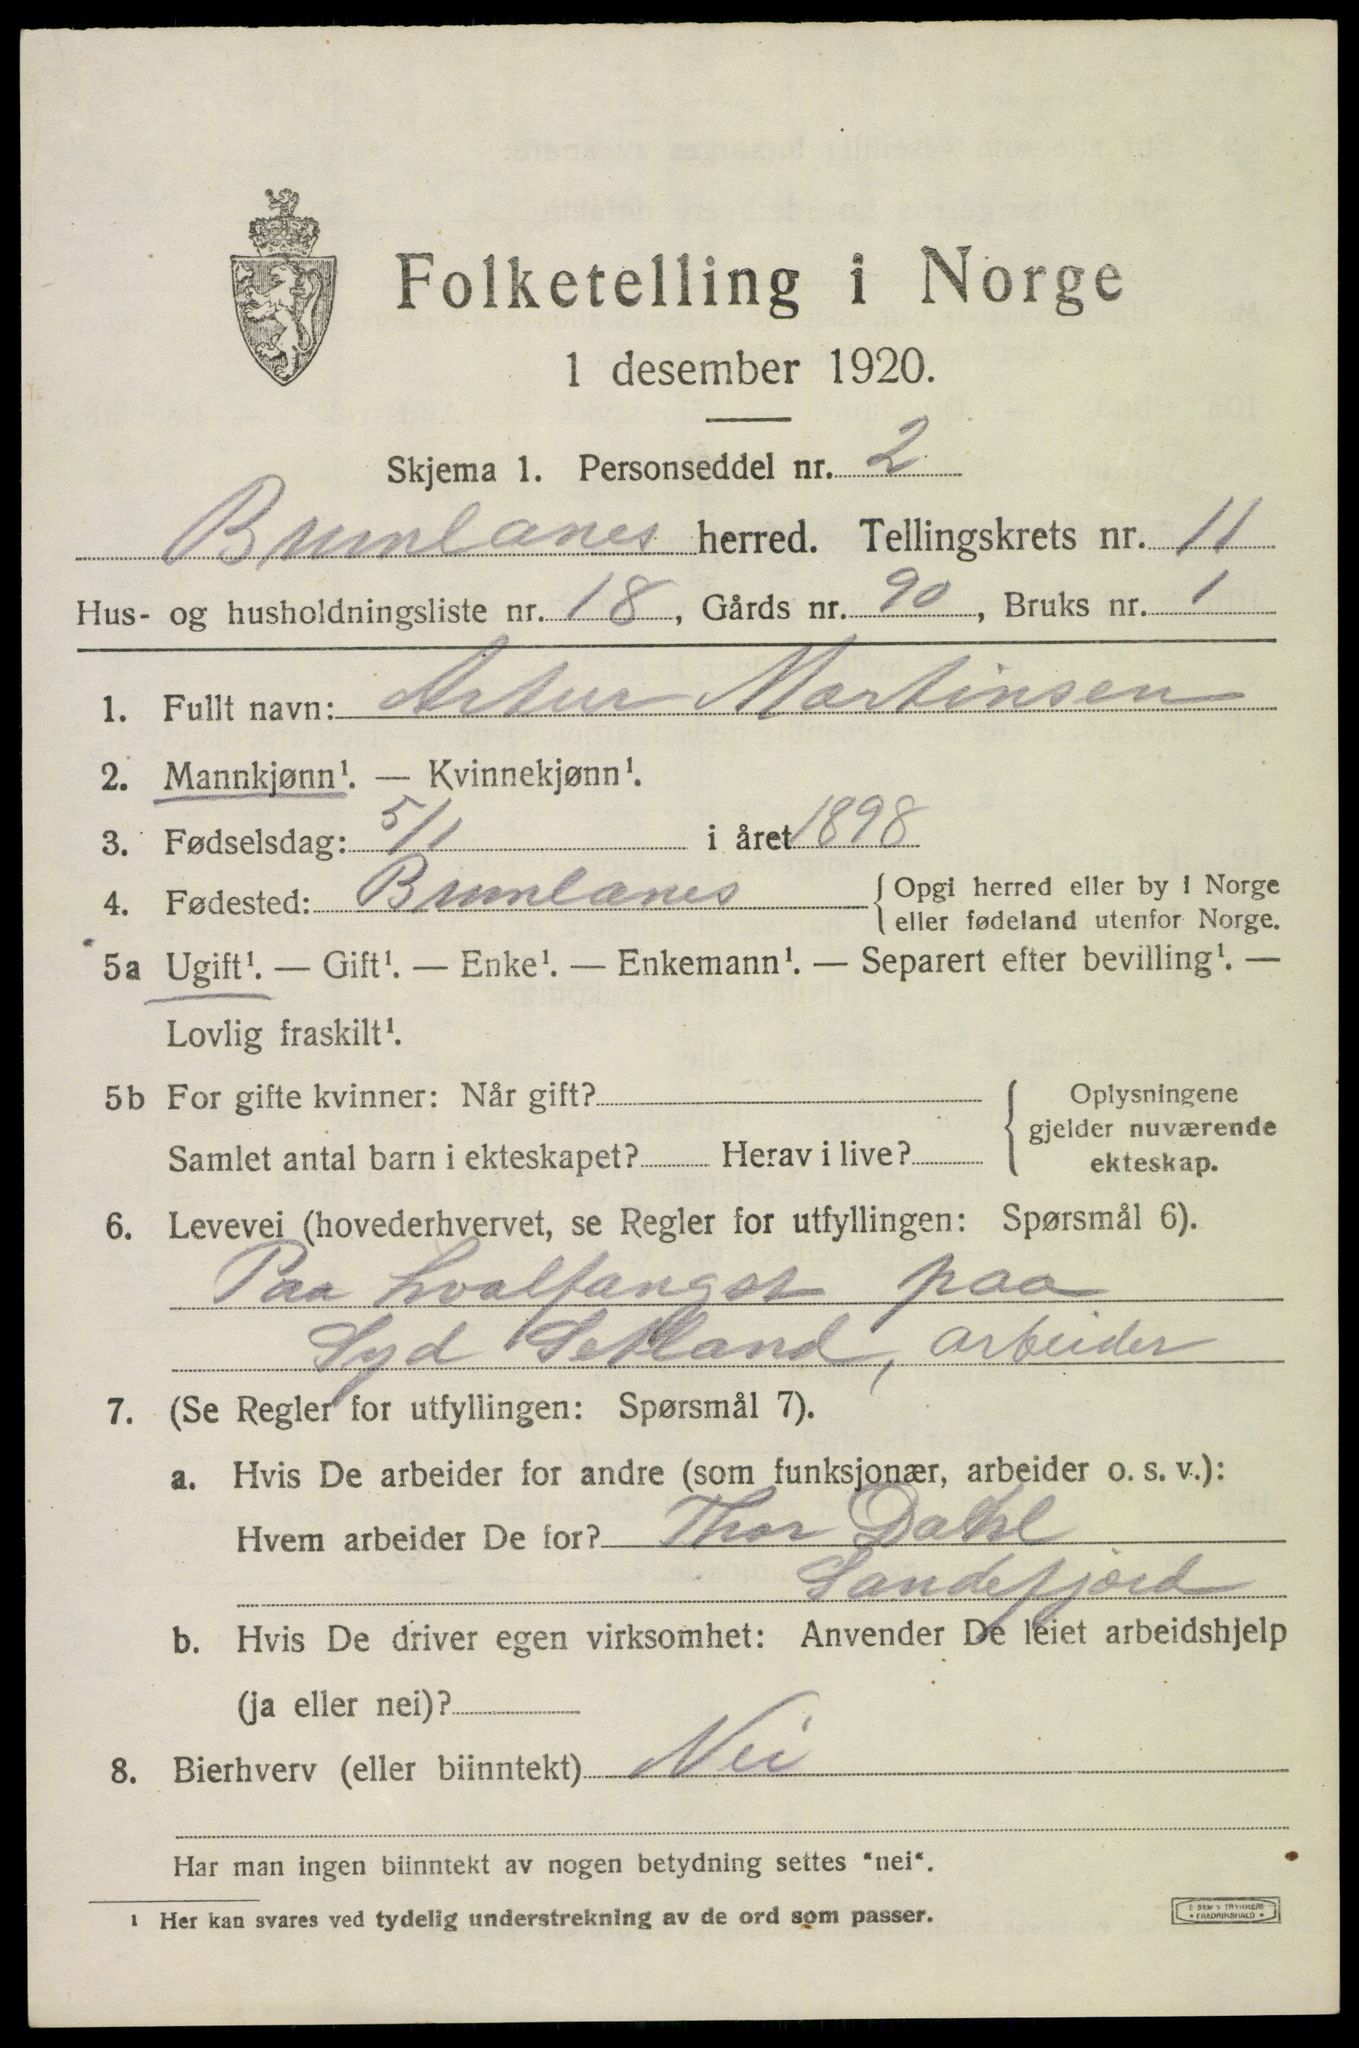 Folketelling i Norge
1 desember 1920.
Skjema 1. Personseddel nr. 2
Brunlanes herred. Tellingskrets nr. 11
Hus- og husholdningsliste nr. 18, Gårds nr. 90, Bruks nr. 1
1. Fullt navn: Artur Martinsen
2. Mannkjønn¹. — Kvinnekjønn¹.
3. Fødselsdag: 5/1 i året 1898
4. Fødested: Brunlanes { Opgi herred eller by i Norge
eller fødeland utenfor Norge.
5a Ugift¹. — Gift¹. — Enke¹. — Enkemann¹. — Separert efter bevilling¹. —
Lovlig fraskilt¹.
5b For gifte kvinner: Når gift? { Oplysningene
gjelder nuværende
Samlet antal barn i ekteskapet? Herav i live? ekteskap.
6. Levevei (hovederhvervet, se Regler for utfyllingen: Spørsmål 6).
Paa hvalfangst paa
Syd Setland, arbeider
7. (Se Regler for utfyllingen: Spørsmål 7).
a. Hvis De arbeider for andre (som funksjonær, arbeider o. s. v.):
Hvem arbeider De for? Thor Dahl
Sandefjord
b. Hvis De driver egen virksomhet: Anvender De leiet arbeidshjelp
(ja eller nei)?
8. Bierhverv (eller biinntekt) Nei
Har man ingen biinntekt av nogen betydning settes "nei".
¹ Her kan svares ved tydelig understrekning av de ord som passer.
FREDRIKSHALD